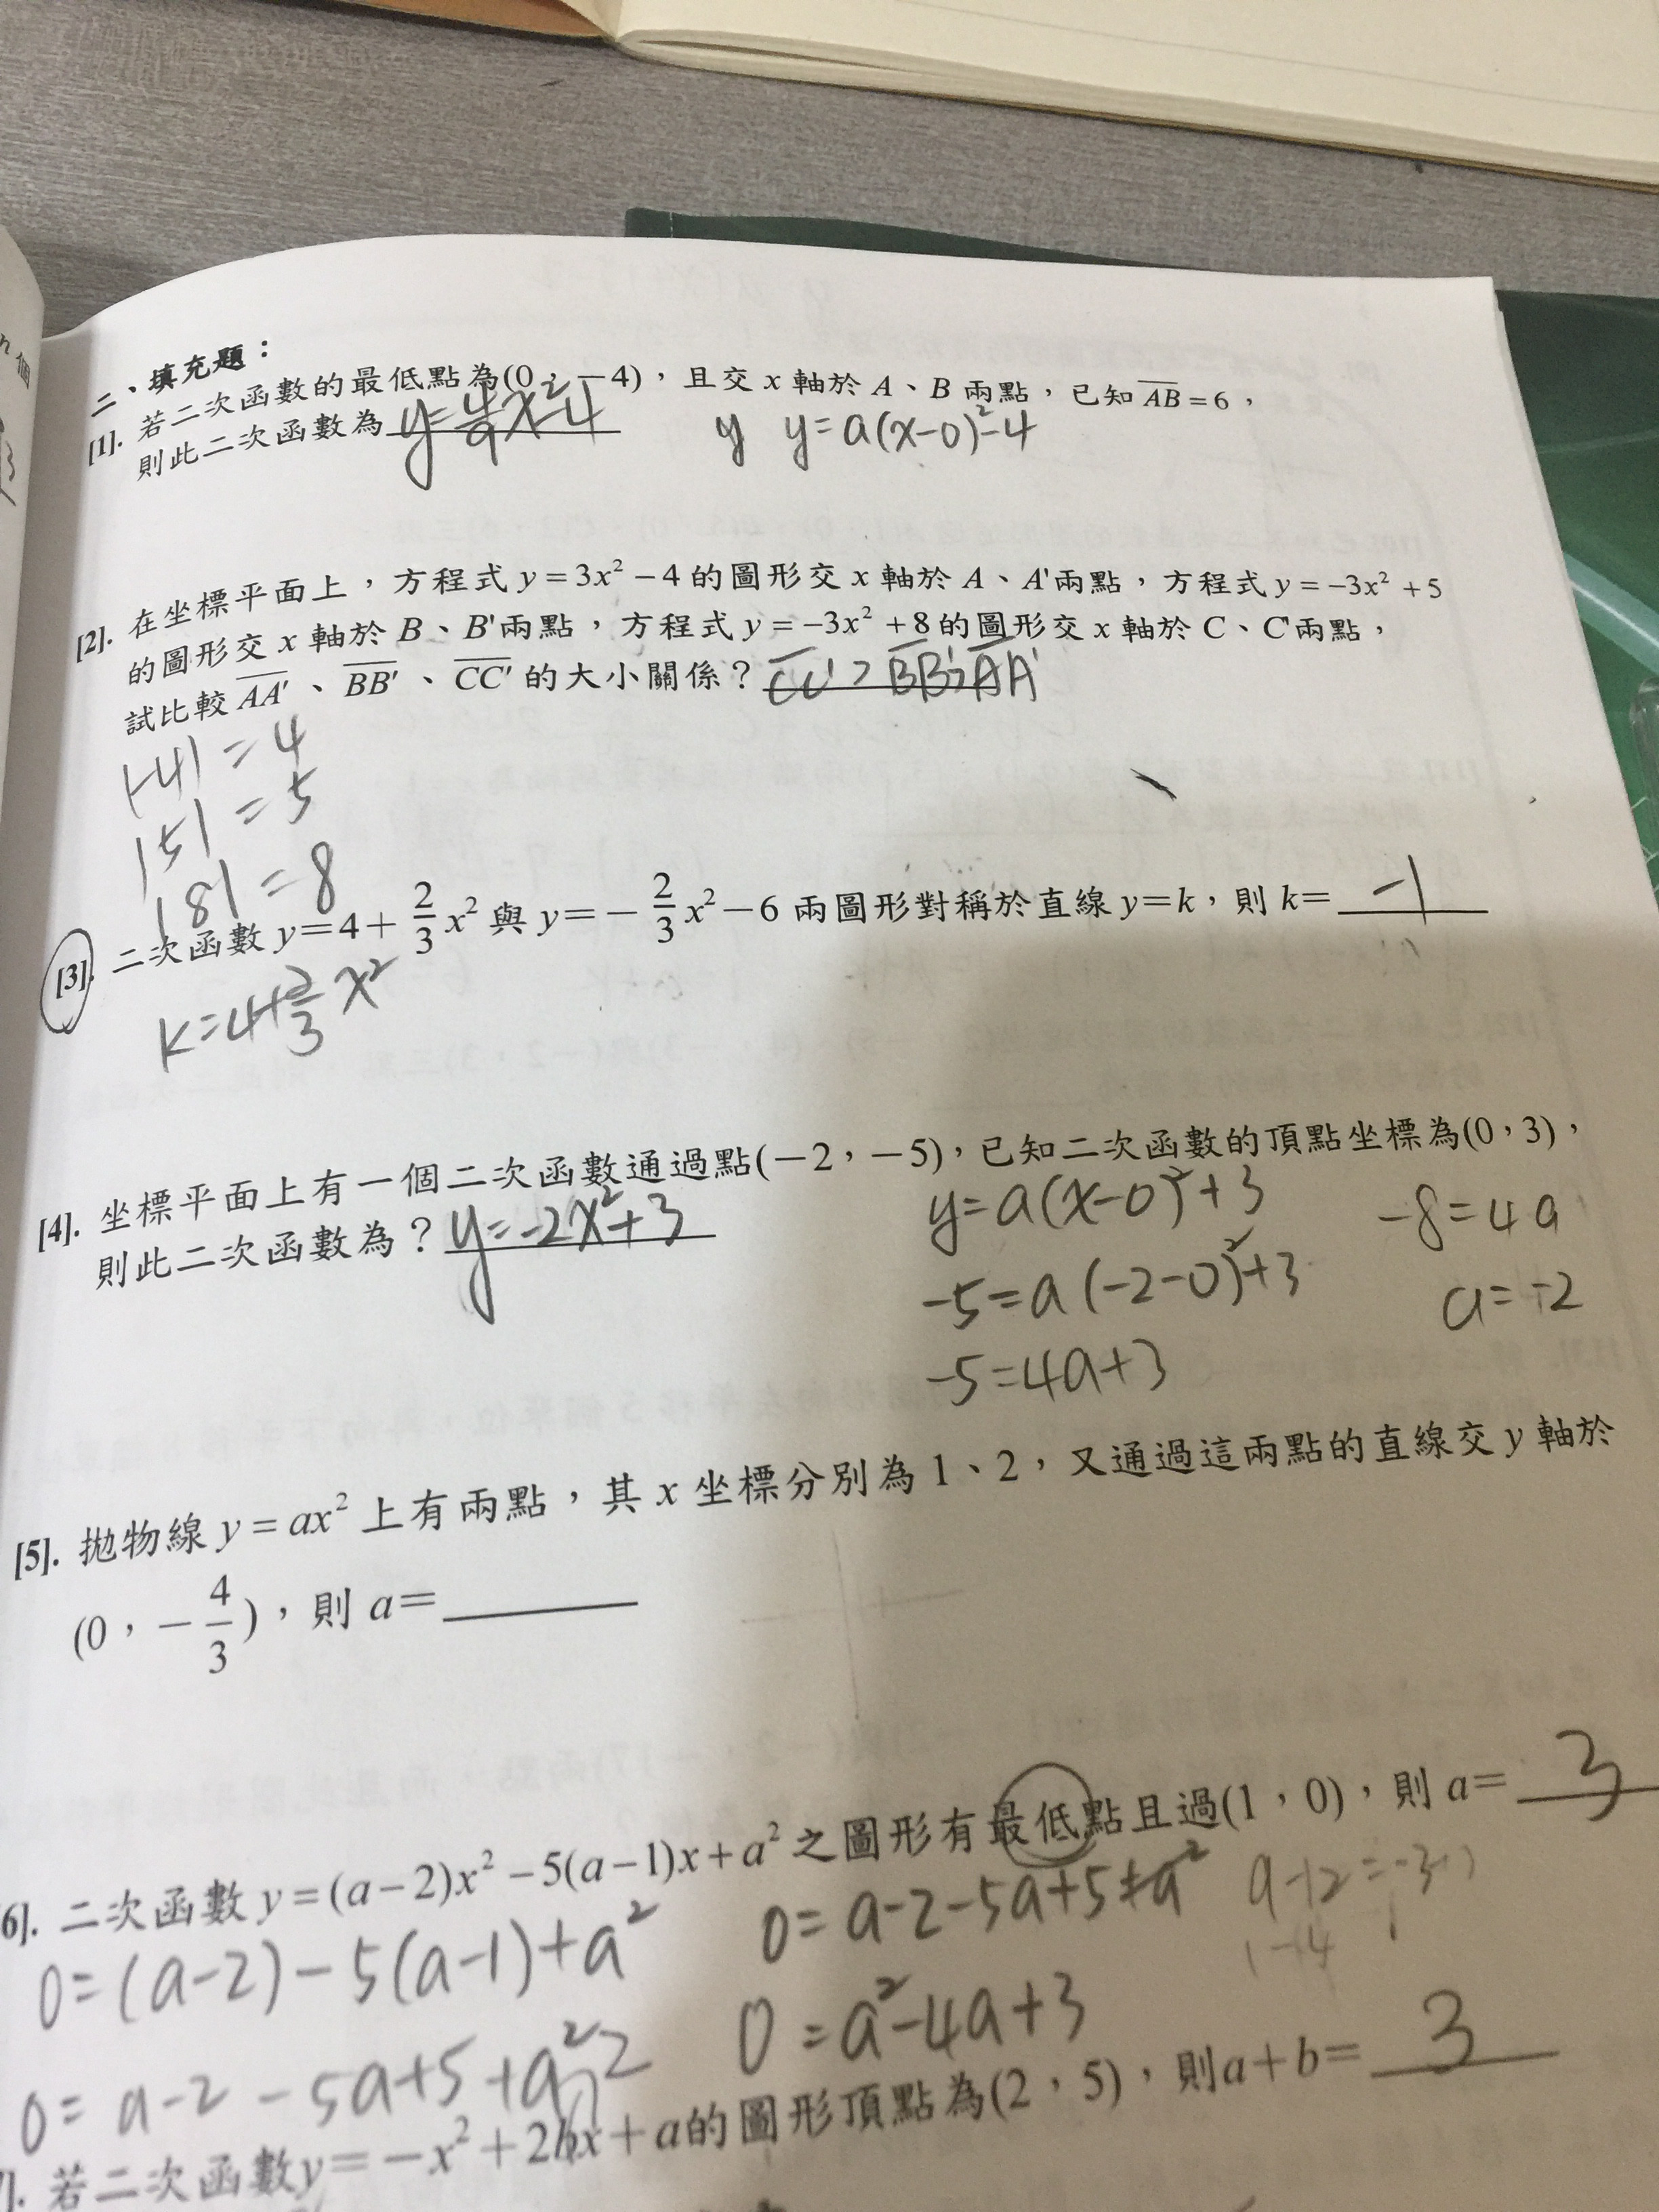 二、填充題：
[1]. 若二次函數的最低點為(0，−4)，且交 x 軸於 A、B 兩點，已知 AB=6，
則此二次函數為 y=4/9x²-4
y y=a(x-0)²-4
[2]. 在坐標平面上，方程式 y=3x²−4 的圖形交 x 軸於 A、A'兩點，方程式 y=−3x²+5
的圖形交 x 軸於 B、B'兩點，方程式 y=−3x²+8 的圖形交 x 軸於 C、C'兩點，
試比較 AA'、BB'、CC' 的大小關係？ CC'>BB'>AA'
|-4|=4
|5|=5
|8|=8
[3]. 二次函數 y=4+2/3x² 與 y=−2/3x²−6 兩圖形對稱於直線 y=k，則 k= -1
k=4+2/3x²
[4]. 坐標平面上有一個二次函數通過點(−2，−5)，已知二次函數的頂點坐標為(0，3)，
則此二次函數為？ y=-2x²+3
y=a(x-0)²+3
-5=a(-2-0)²+3
-5=4a+3
-8=4a
a=-2
[5]. 拋物線 y=ax² 上有兩點，其 x 坐標分別為 1、2，又通過這兩點的直線交 y 軸於
(0，−4/3)，則 a=
6]. 二次函數 y=(a−2)x²−5(a−1)x+a² 之圖形有最低點且過(1，0)，則 a= 3
0=(a-2)-5(a-1)+a²
0=a-2-5a+5+a²
0=a-2-5a+5+a²
0=a²-4a+3
]. 若二次函數y=−x²+2bx+a的圖形頂點為(2，5)，則a+b= 3